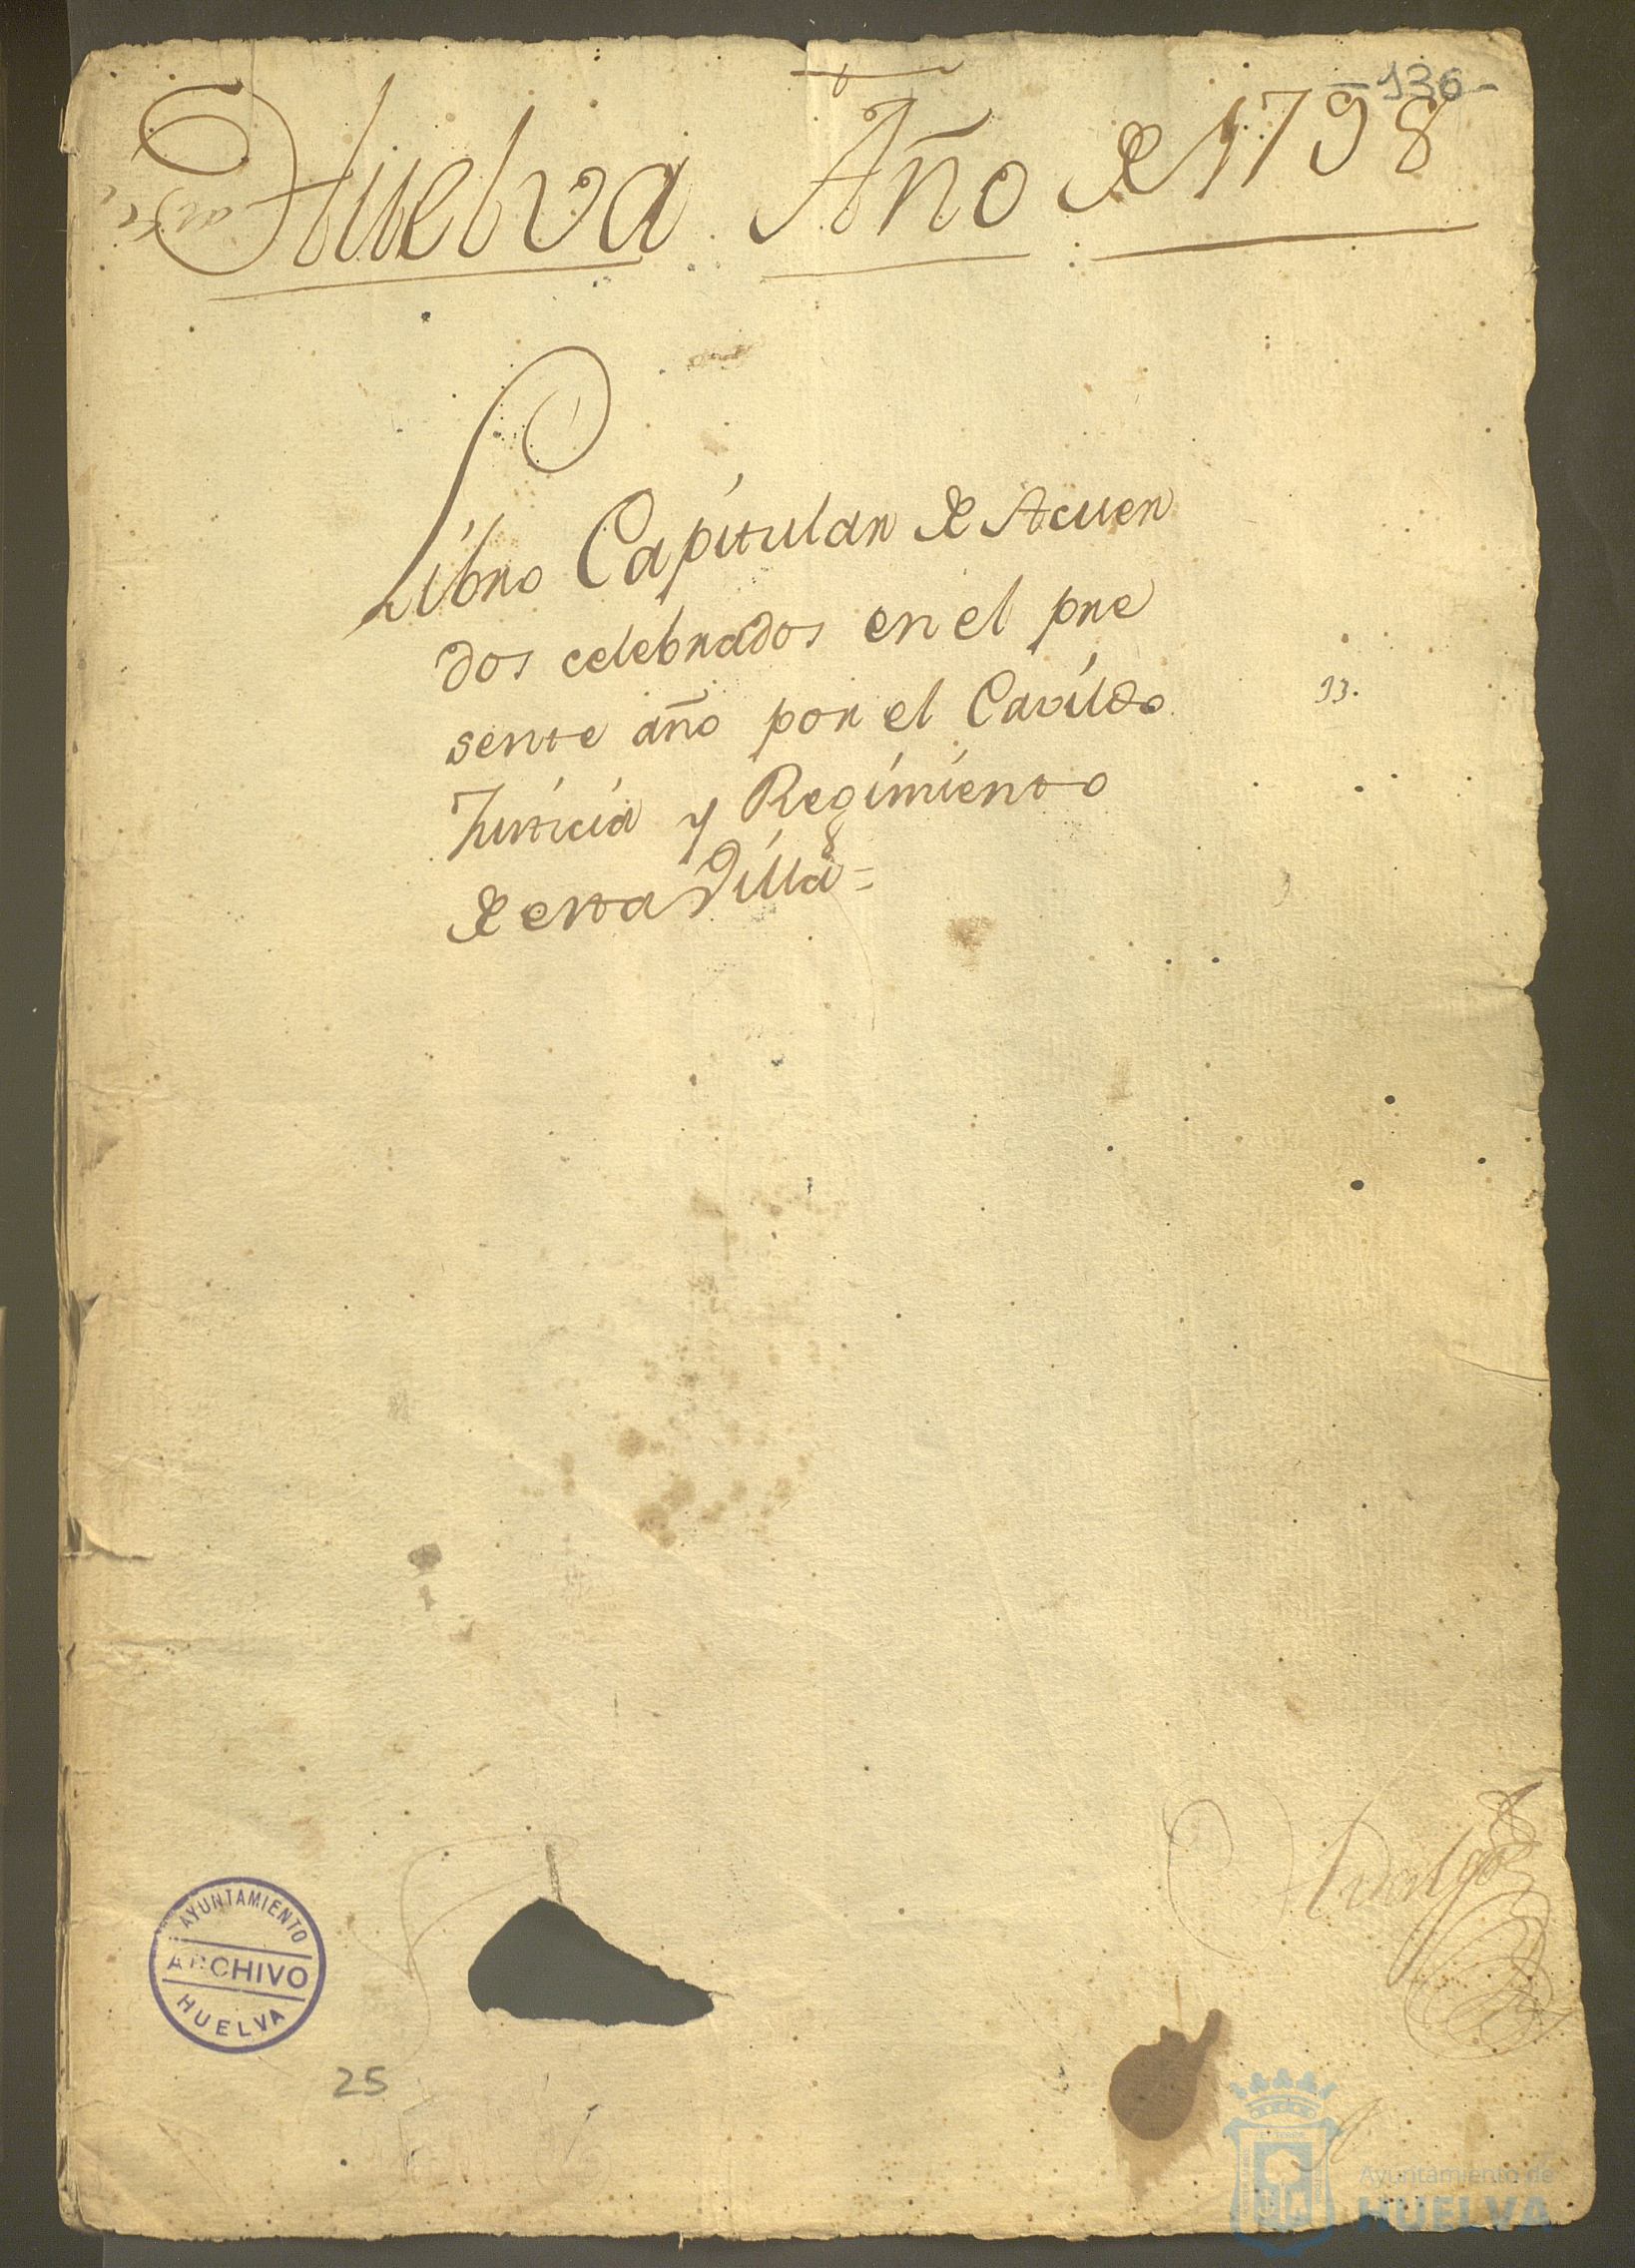 -136-
Huelva Año de 1798
Libro Capitular de Acuer
dos celebrados en el pre
sente año por el Cavildo
Justicia y Regimiento
de esta Villa=
13.
Hidalgo
AYUNTAMIENTO
ARCHIVO
HUELVA
25
Ayuntamiento de
HUELVA